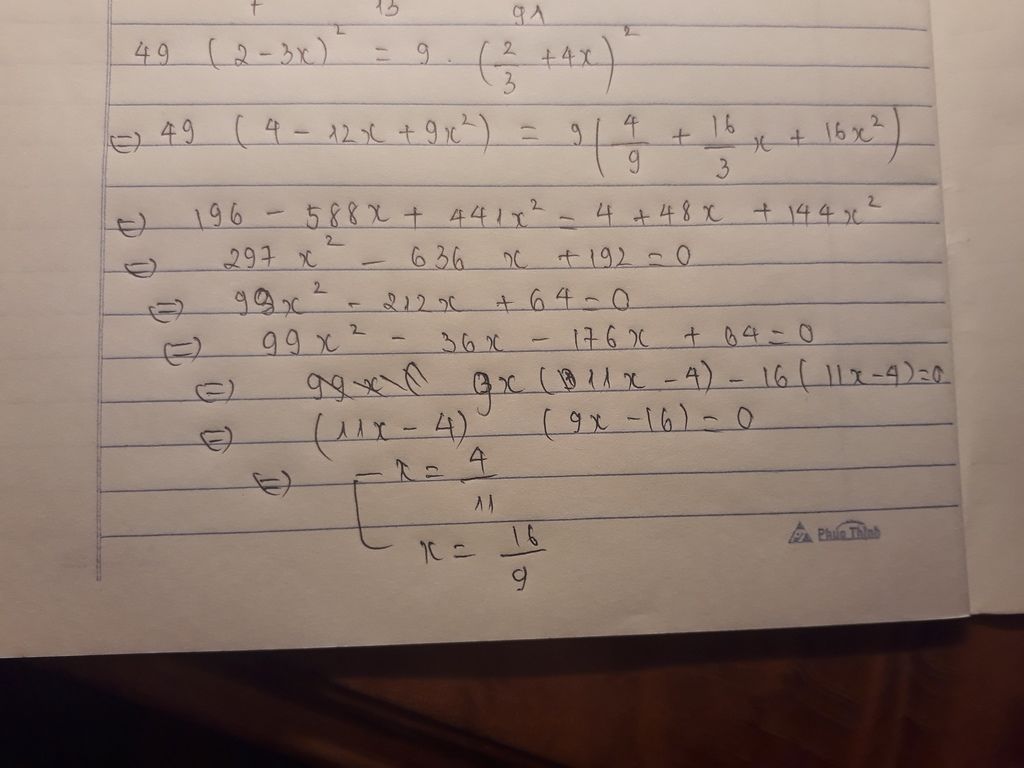 13 91
49 (2 - 3x)² = 9 . (2/3 + 4x)²
⇔ 49 (4 - 12x + 9x²) = 9(4/9 + 16/3 x + 16x²)
⇔ 196 - 588x + 441x² = 4 + 48x + 144x²
⇔ 297x² - 636x + 192 = 0
⇔ 99x² - 212x + 64 = 0
⇔ 99x² - 36x - 176x + 64 = 0
⇔ 9x(11x - 4) - 16(11x - 4) = 0
⇔ (11x - 4) (9x - 16) = 0
⇔ x = 4/11
x = 16/9
Phúc Thịnh